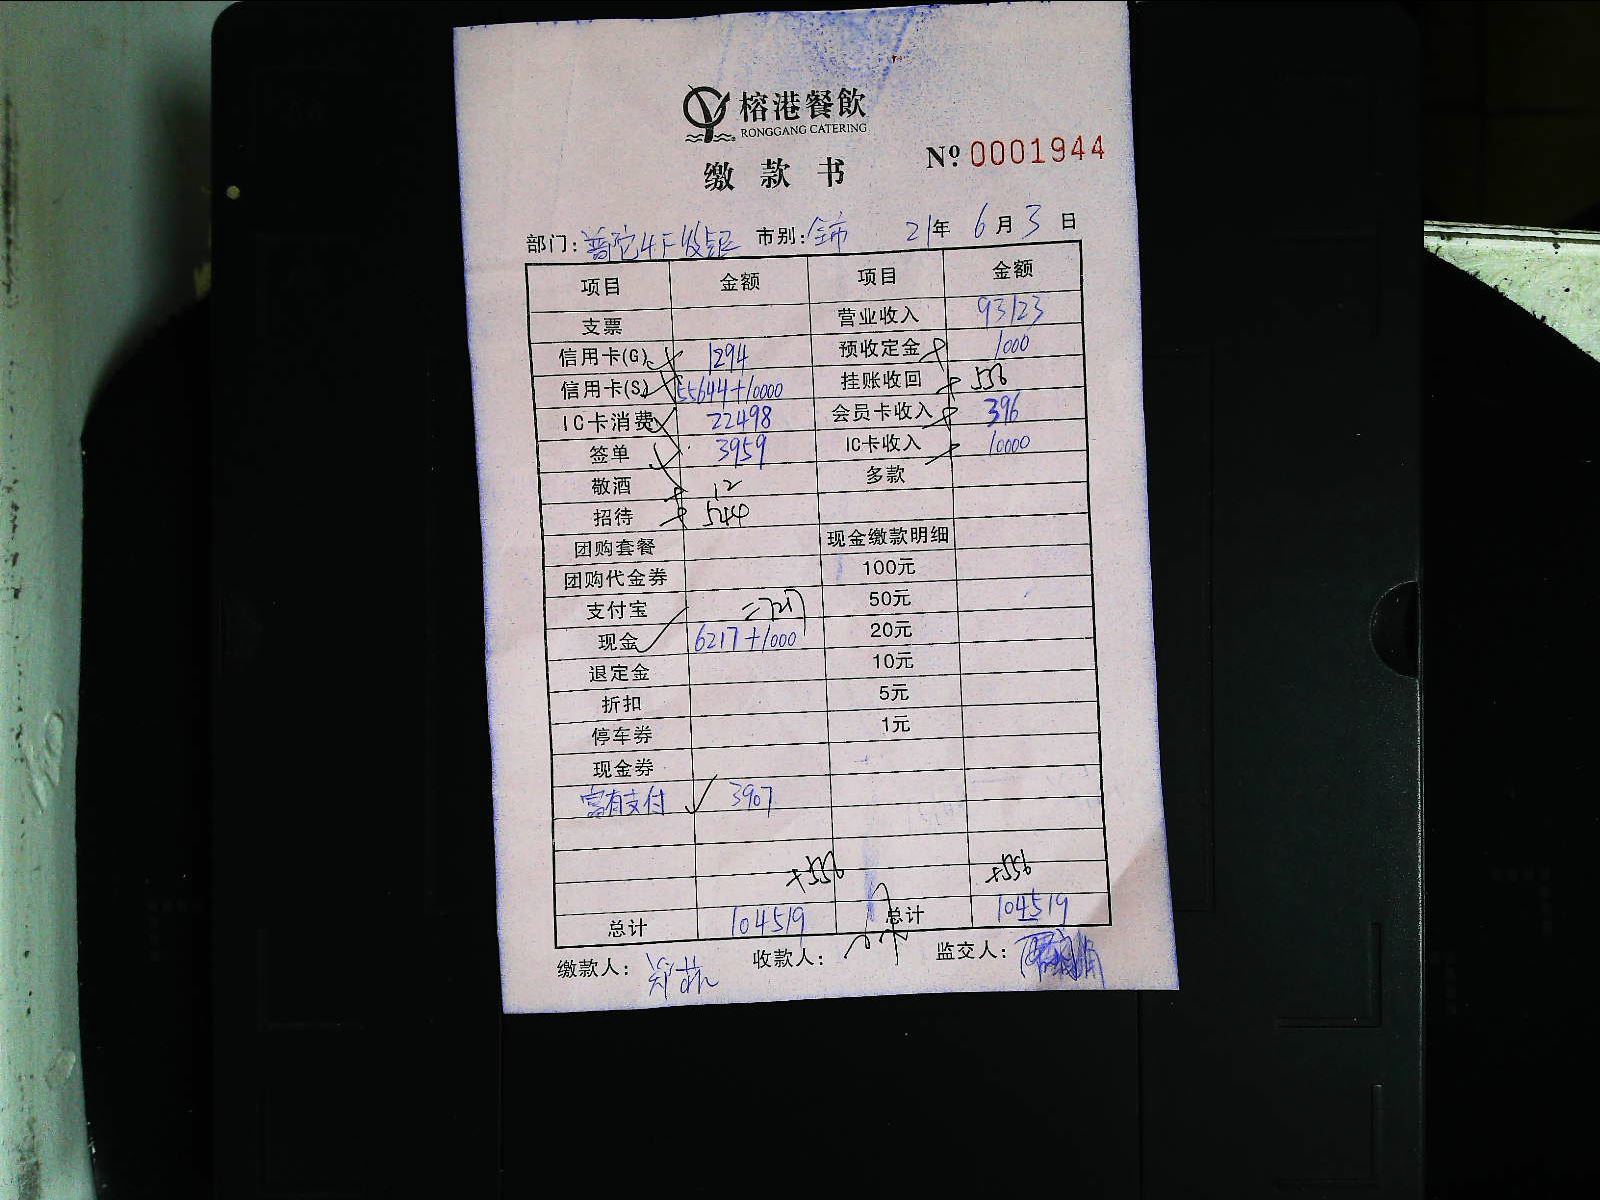 榕港餐飲
RONGGANG CATERING
缴款书 Nº 0001944
部门: 普陀4F 市别: 全市 21年 6月 3日
项目 金额 项目 金额
支票 营业收入 93123
信用卡(G) 1294 预收定金 1000
信用卡(S) 55644+10000 挂账收回 556
IC卡消费 22498 会员卡收入 396
签单 3959 IC卡收入 10000
敬酒 12 多款
招待 544
团购套餐 现金缴款明细
团购代金券 100元
支付宝 50元
现金 6217+1000 20元
退定金 10元
折扣 5元
停车券 1元
现金券
富有支付 3907
+556 +556
总计 104519 总计 104519
缴款人: 收款人: 监交人: